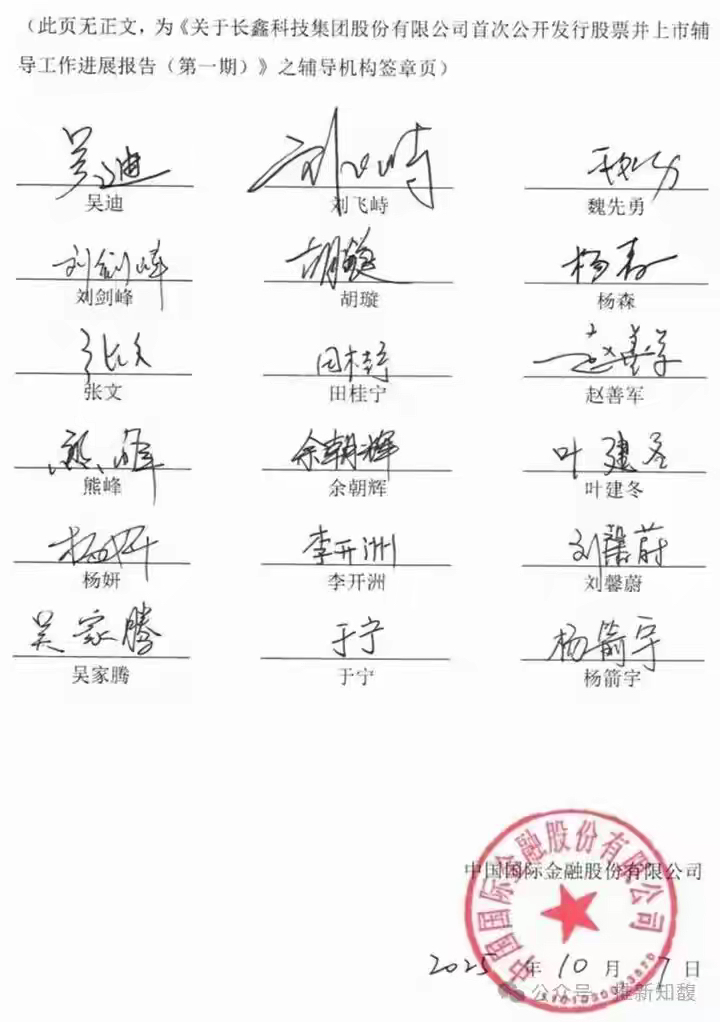 （此页无正文，为《关于长鑫科技集团股份有限公司首次公开发行股票并上市辅
导工作进展报告（第一期）》之辅导机构签章页）
吴迪 刘飞峙 魏先勇
吴迪 刘飞峙 魏先勇
刘剑峰 胡璇 杨森
刘剑峰 胡璇 杨森
张文 田桂宁 赵善军
张文 田桂宁 赵善军
熊峰 余朝辉 叶建冬
熊峰 余朝辉 叶建冬
杨妍 李开洲 刘馨蔚
杨妍 李开洲 刘馨蔚
吴家腾 于宁 杨箭宇
吴家腾 于宁 杨箭宇
中国国际金融股份有限公司
中国国际金融股份有限公司
2025 年 10 月 7 日
公众号·推新知馥